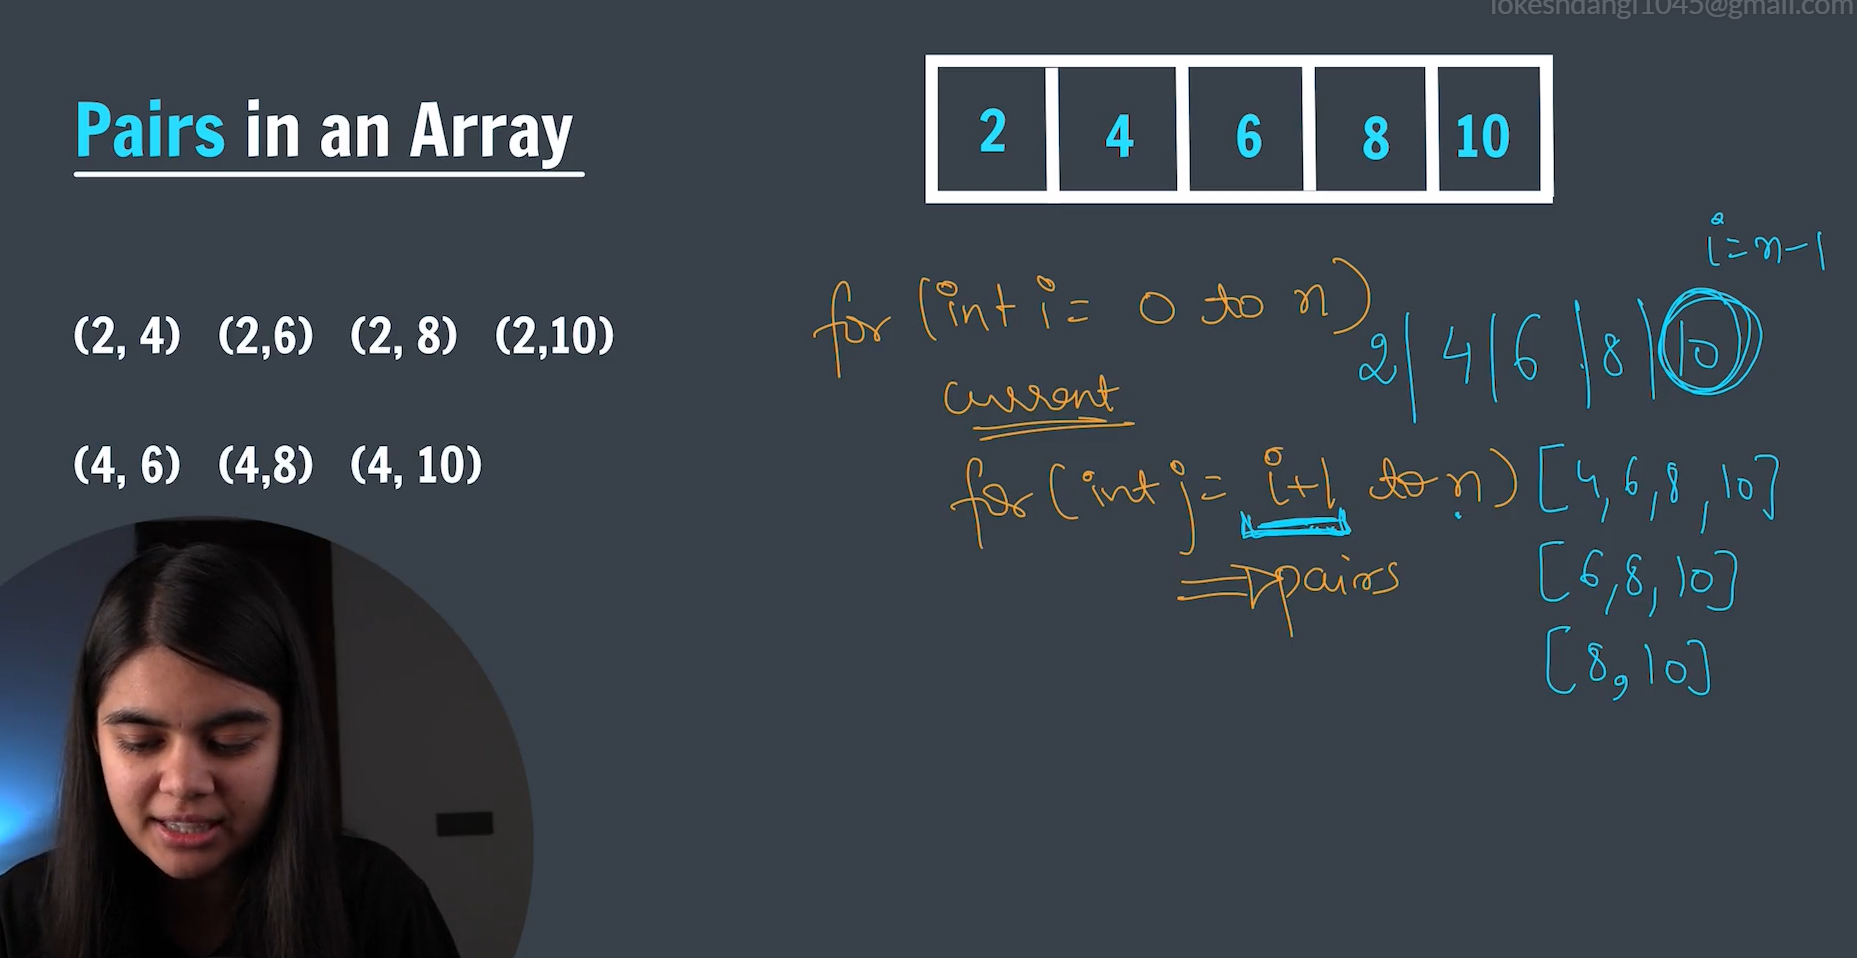 lokeshdangi1045@gmail.com
Pairs in an Array
2 4 6 8 10
(2, 4) (2,6) (2, 8) (2,10)
(4, 6) (4,8) (4, 10)
i=n-1
for (int i= 0 to n)
2| 4| 6 | 8 | 10
current
for (int j= i+1 to n)
[4,6,8,10]
⇒ pairs
[6,8,10]
[8,10]